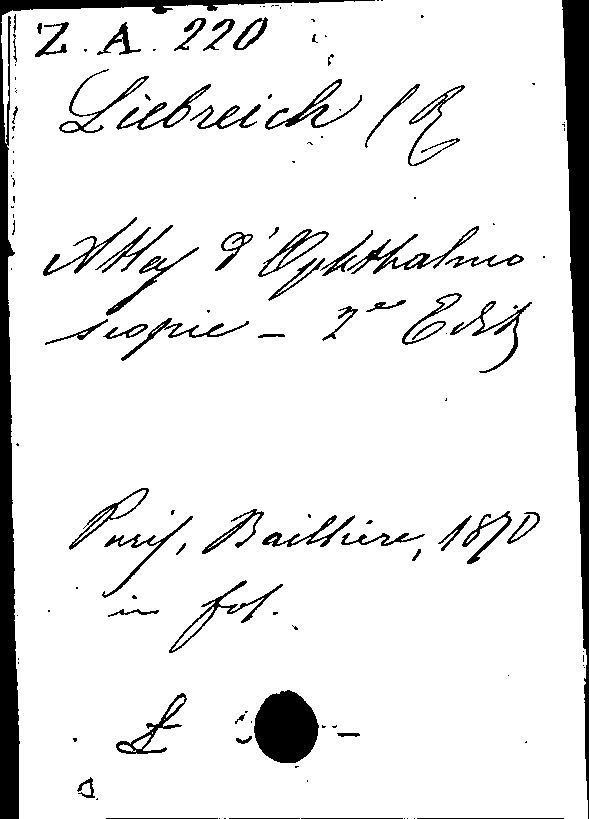 Z. A. 220
Liebreich (R
Atlas d'Ophthalmo
scopie - 2e Edit
Paris, Baillière, 1870
in fol.